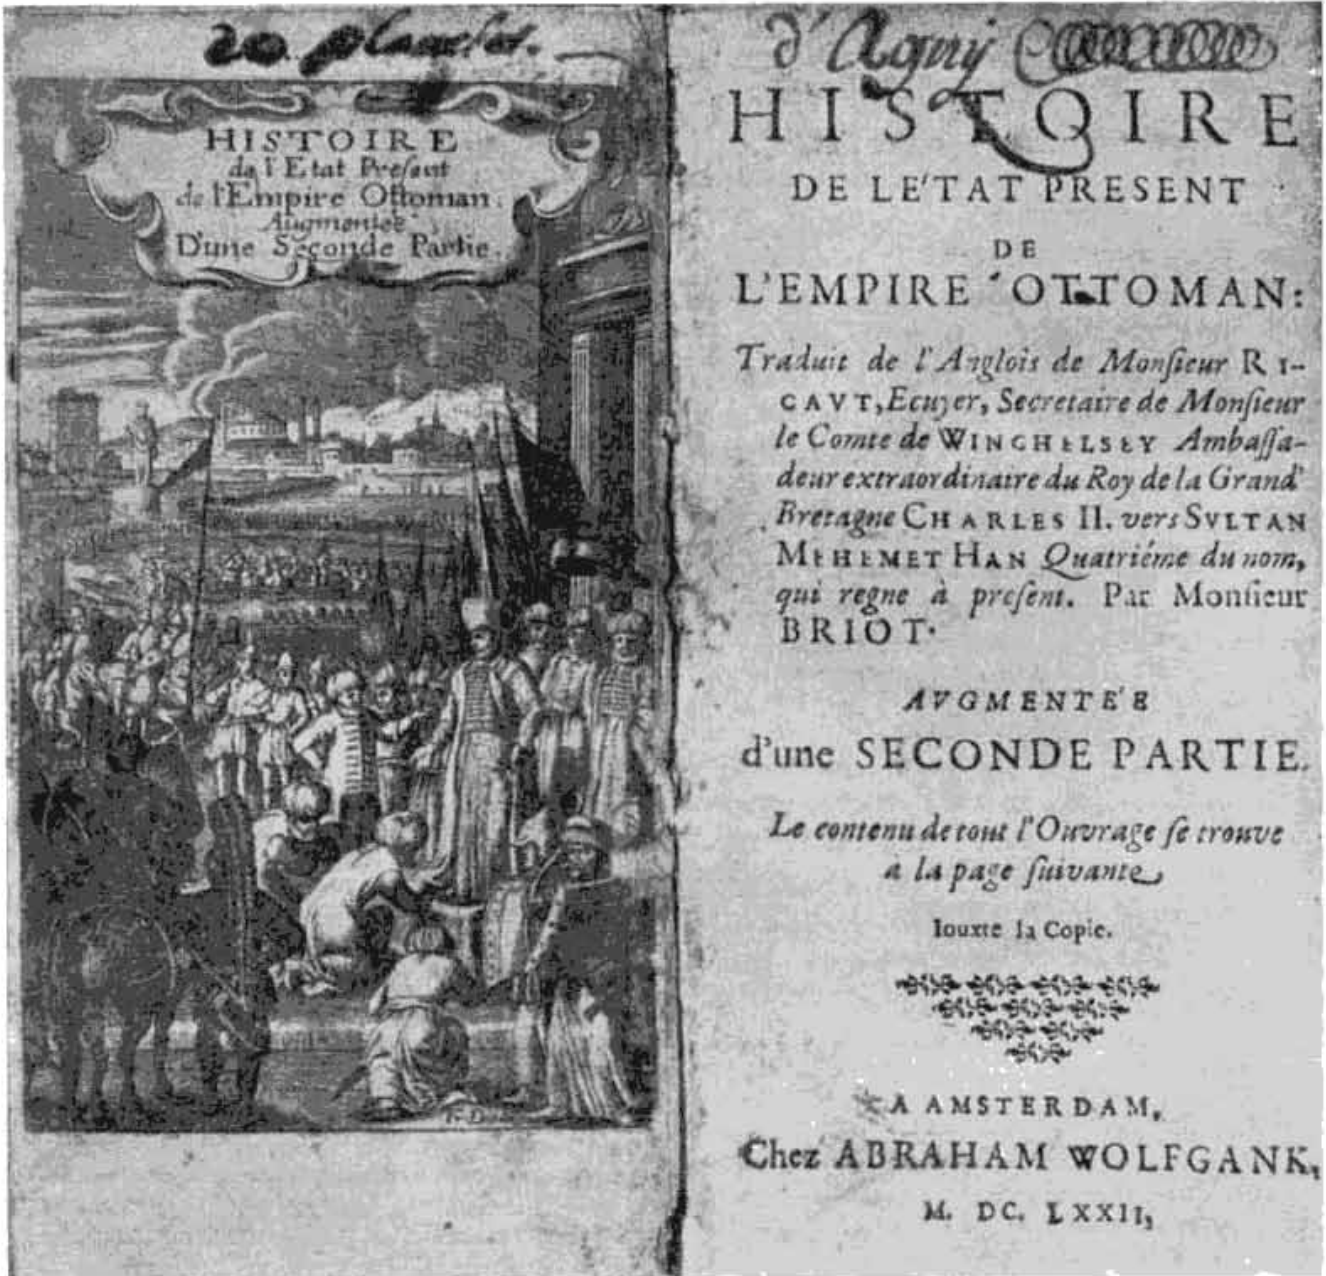 20. planches.
HISTOIRE
de l'Etat Present
de l'Empire Ottoman.
Augmentée
D'une Seconde Partie.
d'Aguy
HISTOIRE
DE LE'TAT PRESENT
DE
L'EMPIRE OTTOMAN:
Traduit de l'Anglois de Monſieur RI-
CAVT, Ecuyer, Secretaire de Monſieur
le Comte de WINCHELSEY Ambaſſa-
deur extraordinaire du Roy de la Grand'
Bretagne CHARLES II. vers SVLTAN
MEHEMET HAN Quatriéme du nom,
qui regne à preſent. Par Monſieur
BRIOT.
AVGMENTE'E
d'une SECONDE PARTIE.
Le contenu de tout l'Ouvrage ſe trouve
a la page ſuivante
Iouxte la Copie.
A AMSTERDAM,
Chez ABRAHAM WOLFGANK,
M. DC. LXXII,